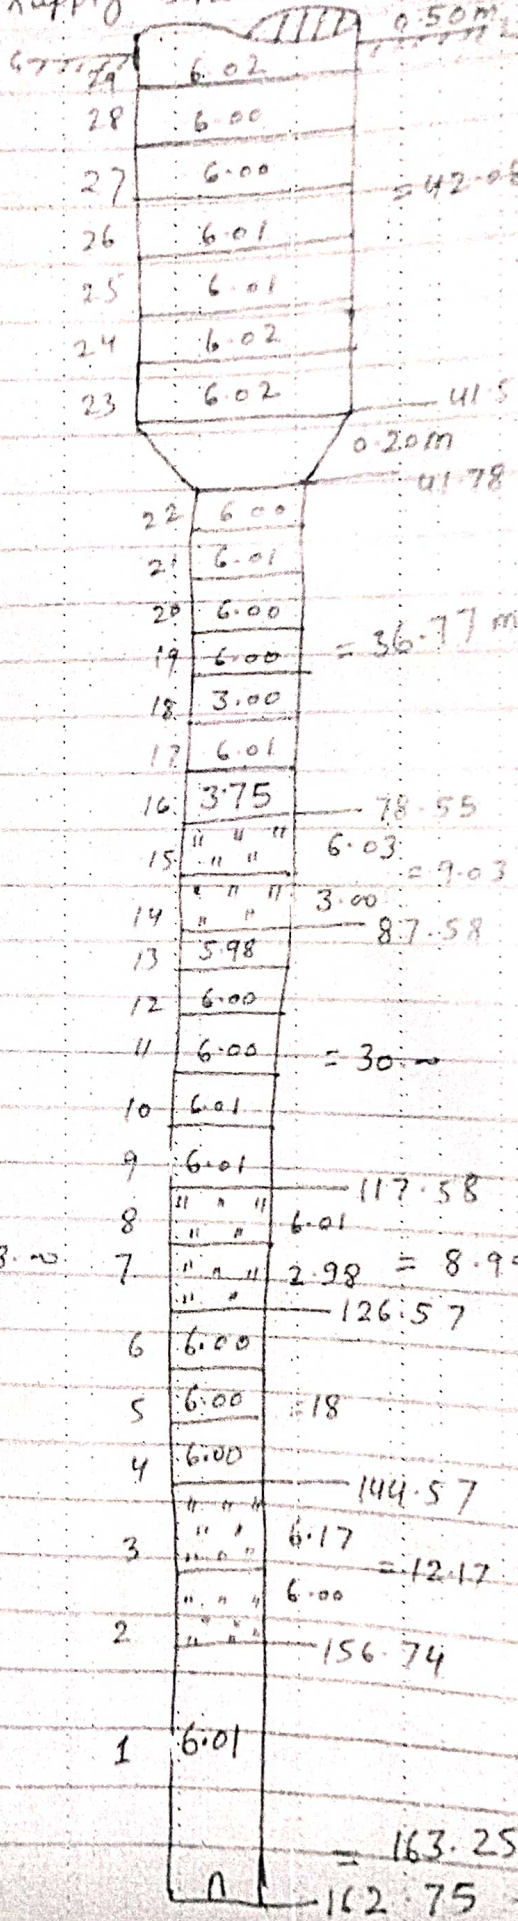 supply
0.50m
G
29 6.02
28 6.00
27 6.00 = 42.08
26 6.01
25 6.01
24 6.02
23 6.02
41.5
0.20m
41.78
22 6.00
21 6.01
20 6.00
19 6.00 = 36.77 m
18 3.00
17 6.01
16 3.75
78.55
15 " " " " " 6.03
= 9.03
14 " " " " " 3.00
87.58
13 5.98
12 6.00
11 6.00 = 30.00
10 6.01
9 6.01
117.58
8 " " " " " 6.01
7 " " " " " 2.98 = 8.9
126.57
6 6.00
5 6.00 = 18
4 6.00
144.57
3 " " " " " " " " 6.17
= 12.17
2 " " " " " " " " 6.00
156.74
1 6.01
= 163.25
162.75